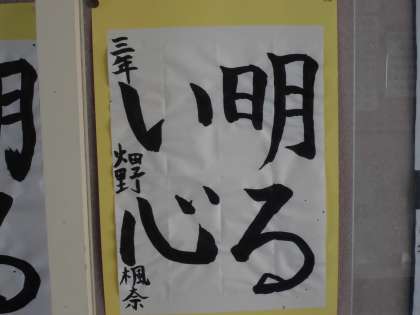 明る
い心
三年 畑野 楓奈
明
る